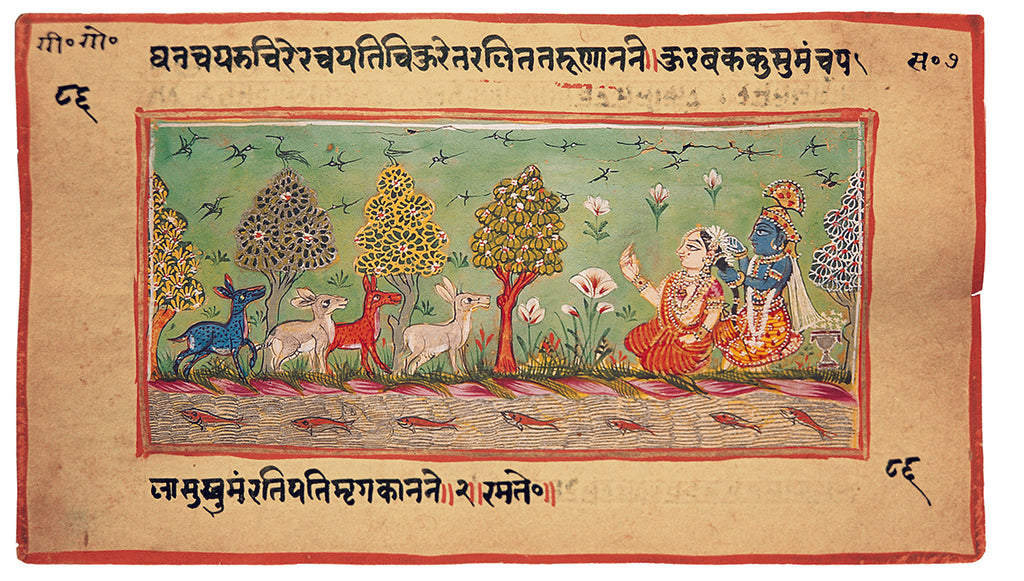 गी॰ गो॰
घनचयरुचिरेरचयतिचिकुरेतरलिततरूणानने॥कुरबककुसुमंचप
स॰ ७
८६
लासुखुमंरतिपतिमृगकानने॥२॥रमते॰॥
८६